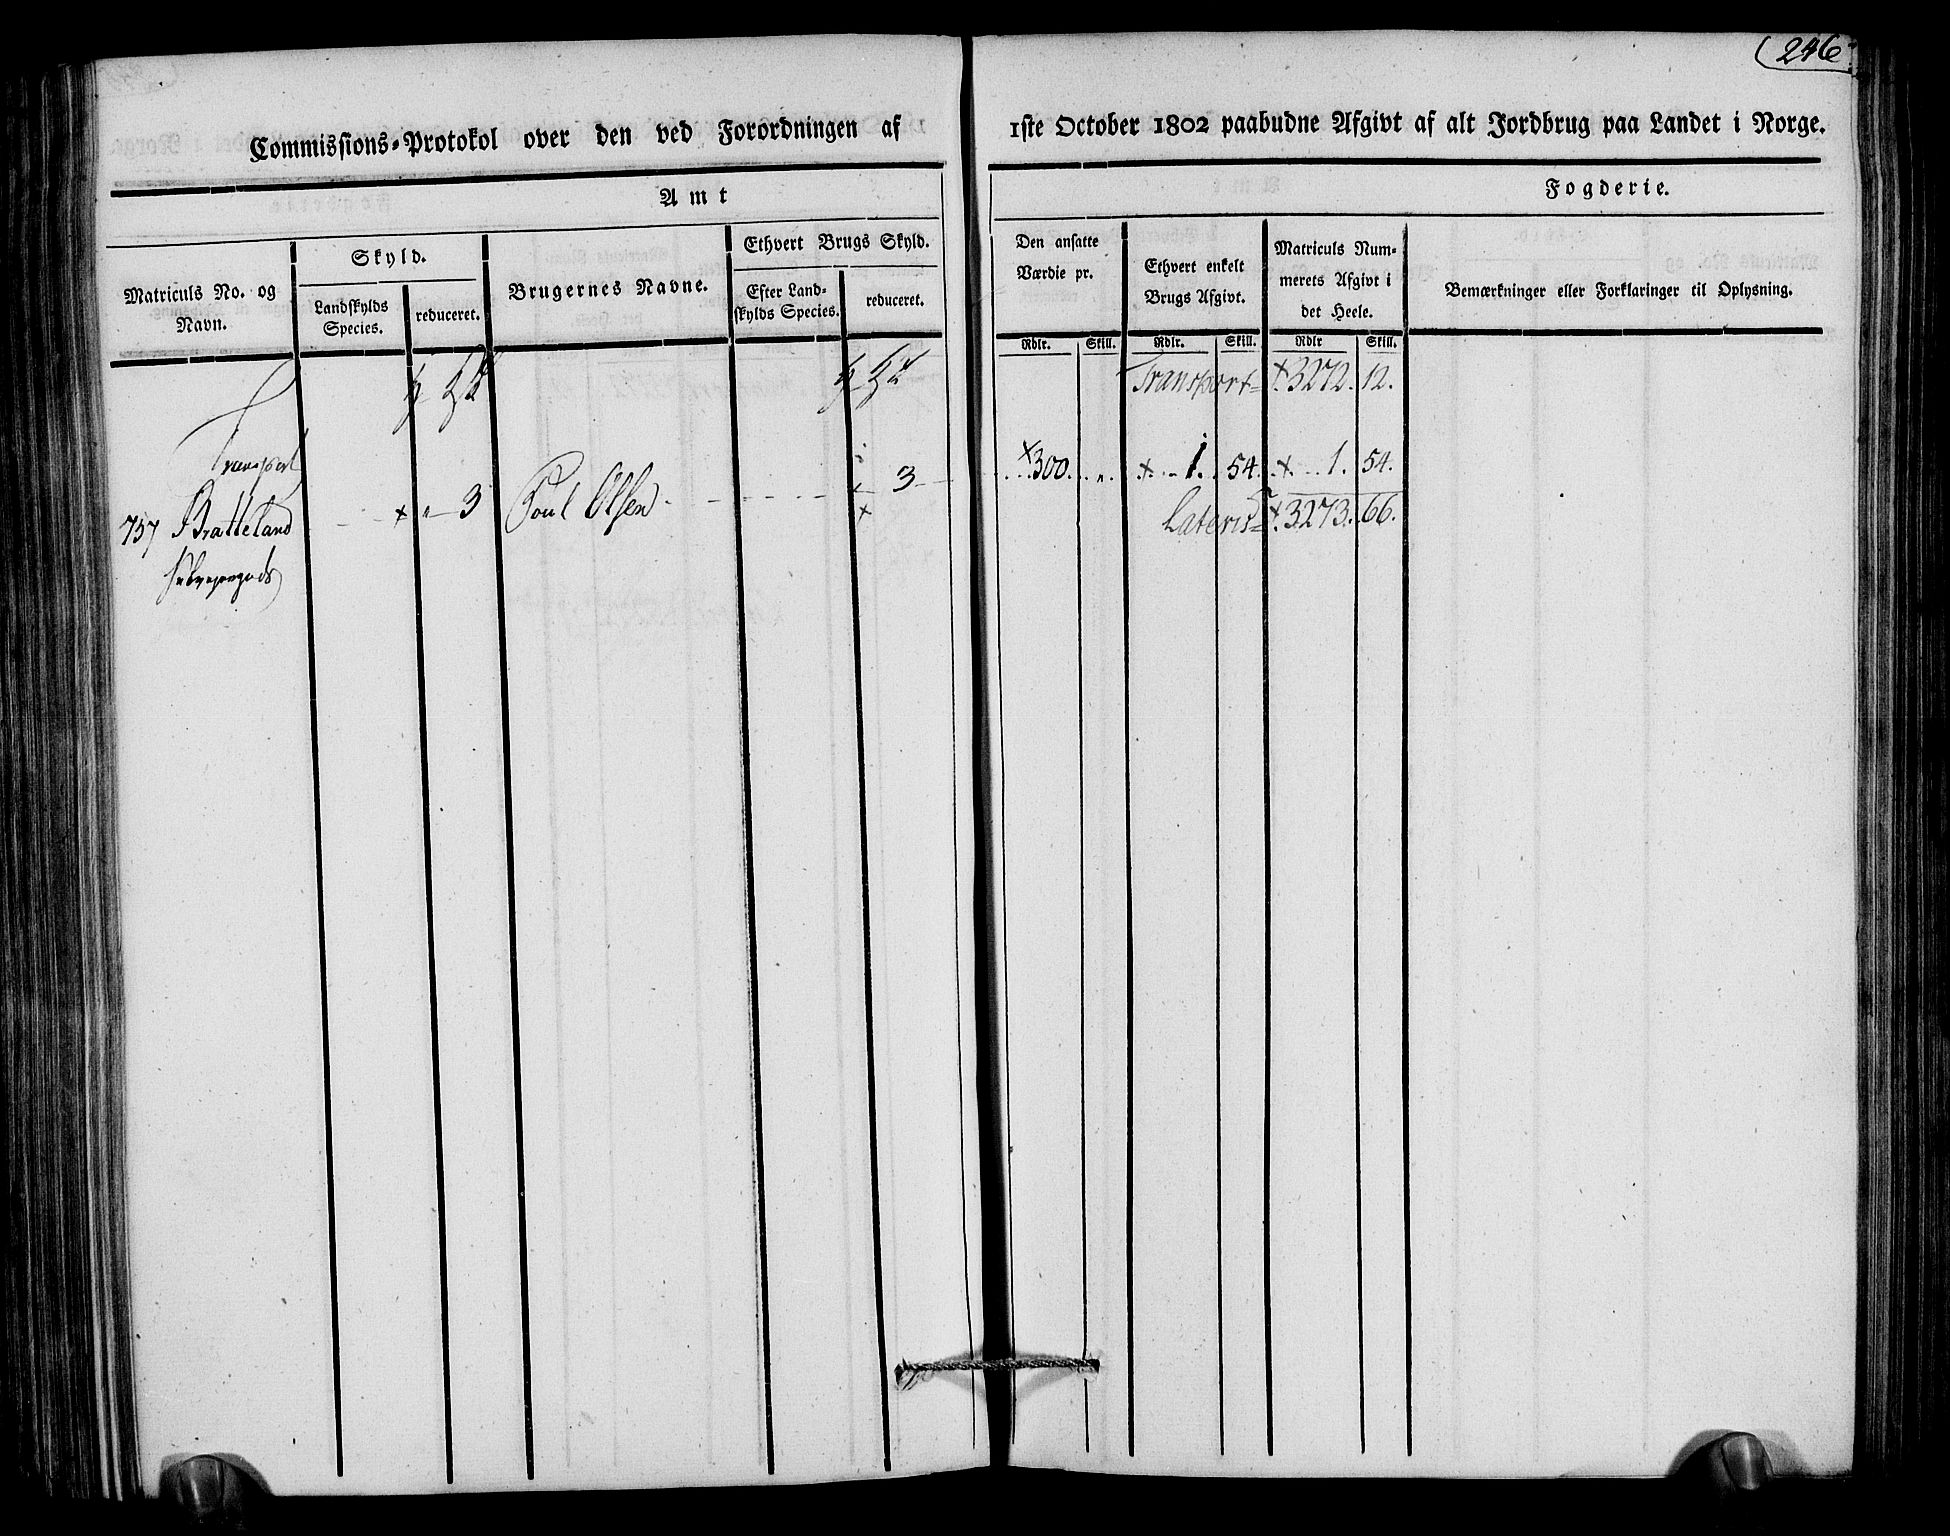 246
Commissions-Protokol over den ved Forordningen af 1ste October 1802 paabudne Afgivt af alt Jordbrug paa Landet i Norge.
Amt Fogderie.
Matriculs No. og Navn.
Skyld.
Landskylds Species.
reduceret.
Brugernes Navne.
Ethvert Brugs Skyld.
Efter Landskylds Species.
reduceret.
Den ansatte Værdie pr.
Rdlr. Skill.
Ethvert enkelt Brugs Afgivt.
Rdlr. Skill.
Matriculs Nummerets Afgivt i det Heele.
Rdlr Skill.
Bemærkninger eller Forklaringer til Oplysning.
Transport= 3272. 12.
Transport
757 Bratteland " 3 Poul Olsen 3 300. " 1. 54. 1. 54.
Lateris= 3273. 66.